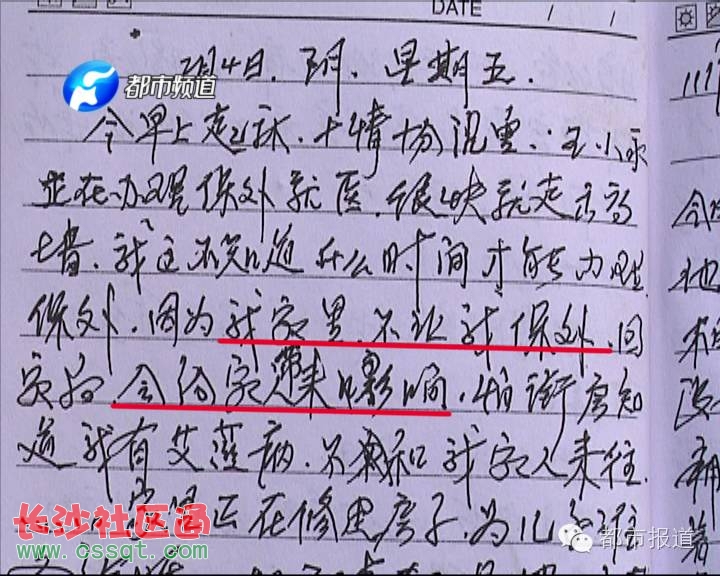 DATE / /
2月4日. 阴. 星期五.
都市频道
今早上起床. 心情十分沉重. 王小
正在办理保外就医. 很快就走出高
墙. 我还不知道什么时间才能办理
保外. 因为我家里不让我保外. 回
家后会给家人带来影响. 怕街房知
道我有艾滋病. 不来和我家人来往.
正在修建房子. 为儿
长沙社区通
www.cssqt.com
都市报道